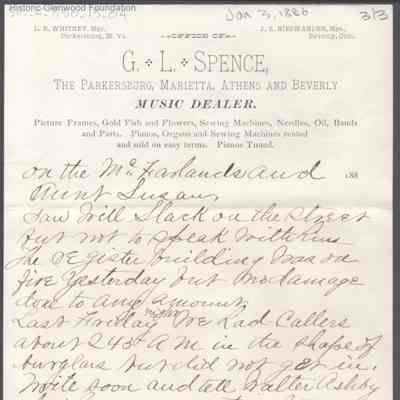 Historic Glenwood Foundation
Jan 3, 1886
3/3
L. R. WHITNEY, Mgr.
Parkersburg, W. Va.
OFFICE OF
J. E. NISWANDER, Mgr.,
Beverly, Ohio.
G. L. SPENCE,
THE PARKERSBURG, MARIETTA, ATHENS AND BEVERLY
MUSIC DEALER.
Picture Frames, Gold Fish and Flowers, Sewing Machines, Needles, Oil, Bands
and Parts. Pianos, Organs and Sewing Machines rented
and sold on easy terms. Pianos Tuned.
188
on the McFarlands and
Aunt Susan,
Saw Will Slack on the street
but not to speak with him
The register building was on
fire yesterday but no damage
don to any amount.
Last Friday night We had Callers
about 2 45 A M in the shape of
burglars but did not get in.
Write soon and tell Walter Ashby